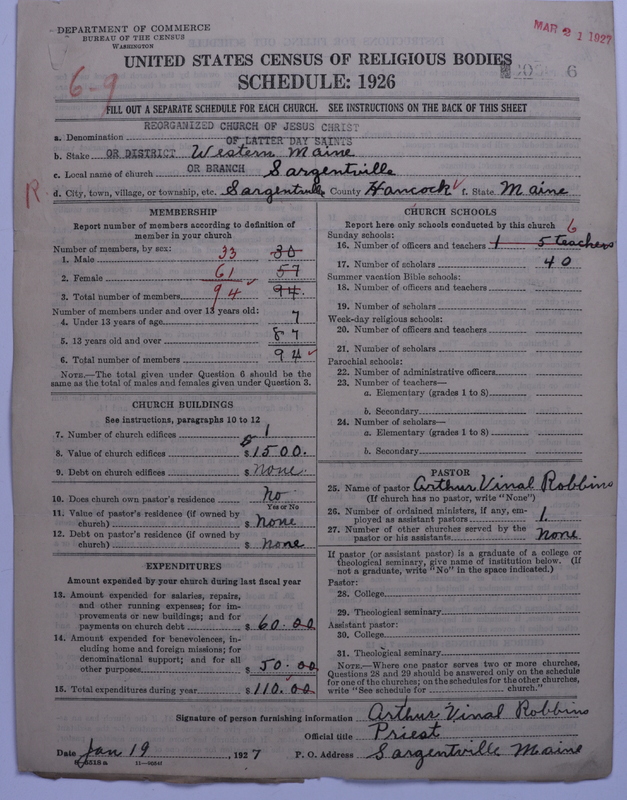 DEPARTMENT OF COMMERCE
BUREAU OF THE CENSUS
WASHINGTON
MAR 21 1927
UNITED STATES CENSUS OF RELIGIOUS BODIES
SCHEDULE: 1926
6-9
6
FILL OUT A SEPARATE SCHEDULE FOR EACH CHURCH. SEE INSTRUCTIONS ON THE BACK OF THIS SHEET
REORGANIZED CHURCH OF JESUS CHRIST
a. Denomination OF LATTER DAY SAINTS
b. Stake OR DISTRICT Western Maine
c. Local name of church OR BRANCH Sargentville
R d. City, town, village, or township, etc. Sargentville County Hancock f. State Maine
MEMBERSHIP
Report number of members according to definition of
member in your church
Number of members, by sex:
1. Male 33 30
2. Female 61 57
3. Total number of members 94 94
Number of members under and over 13 years old:
4. Under 13 years of age 7
5. 13 years old and over 87
6. Total number of members 94
NOTE.—The total given under Question 6 should be
same as the total of males and females given under Question 3.
CHURCH BUILDINGS
See instructions, paragraphs 10 to 12
7. Number of church edifices 1
8. Value of church edifices $1500.
9. Debt on church edifices $ None.
10. Does church own pastor's residence No
Yes or No
11. Value of pastor's residence (if owned by
church) $ None
12. Debt on pastor's residence (if owned by
church) $ None
EXPENDITURES
Amount expended by your church during last fiscal year
13. Amount expended for salaries, repairs,
and other running expenses; for im-
provements or new buildings; and for
payments on church debt $ 60.00
14. Amount expended for benevolences, in-
cluding home and foreign missions; for
denominational support; and for all
other purposes $ 50.00
15. Total expenditures during year $110.00
CHURCH SCHOOLS
Report here only schools conducted by this church 6
Sunday schools:
16. Number of officers and teachers 1 5 teachers
17. Number of scholars 40
Summer vacation Bible schools:
18. Number of officers and teachers
19. Number of scholars
Week-day religious schools:
20. Number of officers and teachers
21. Number of scholars
Parochial schools:
22. Number of administrative officers
23. Number of teachers—
a. Elementary (grades 1 to 8)
b. Secondary
24. Number of scholars—
a. Elementary (grades 1 to 8)
b. Secondary
PASTOR
25. Name of pastor Arthur Vinal Robbins
(If church has no pastor, write "None")
26. Number of ordained ministers, if any, em-
ployed as assistant pastors 1.
27. Number of other churches served by the
pastor or his assistants None
If pastor (or assistant pastor) is a graduate of a college or
theological seminary, give name of institution below. (If
not a graduate, write "No" in the space indicated.)
Pastor:
28. College
29. Theological seminary
Assistant pastor:
30. College
31. Theological seminary
NOTE.—Where one pastor serves two or more churches,
Questions 28 and 29 should be answered only on the schedule
for one of the churches; on the schedules for the other churches,
write "See schedule for church."
Signature of person furnishing information Arthur Vinal Robbins
Official title Priest
Date Jan 19, 1927 P. O. Address Sargentville Maine